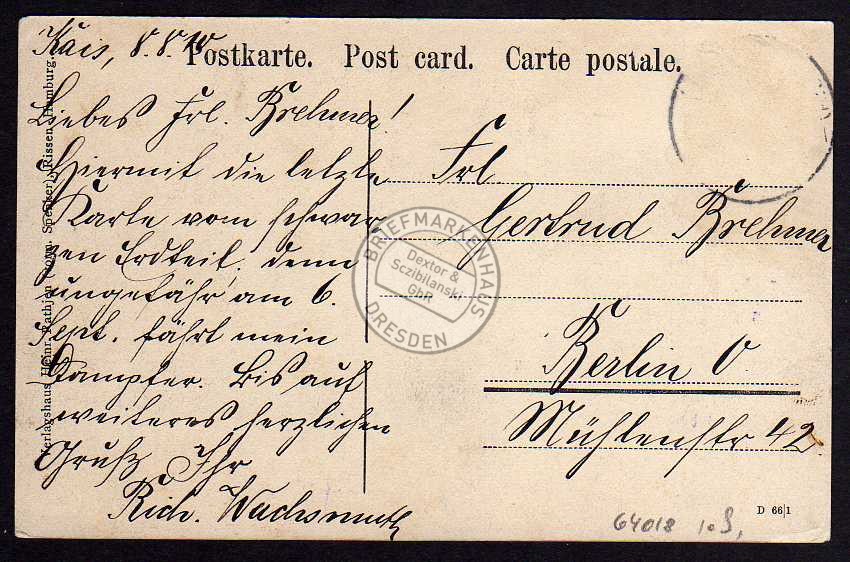 Kais, 8.8.10
Postkarte. Post card. Carte postale.
Liebes Frl. Brehmer!
Hiermit die letzte
Karte vom schwar
zen Erdteil, denn
ungefähr am 6.
Sept. fährt mein
Dampfer. Bis auf
weiteres herzlichen
Gruß Ihr
Rich. Wachsmuth
Frl
Gertrud Brehmer
Berlin O.
Mühlenstr 42
Verlagshaus Heinr. Rathjen (vorm. Spenker), Rissen, Hamburg.
BRIEFMARKENHAUS
Dextor &
Sczibilanski
GbR
DRESDEN
D 66|1
64018